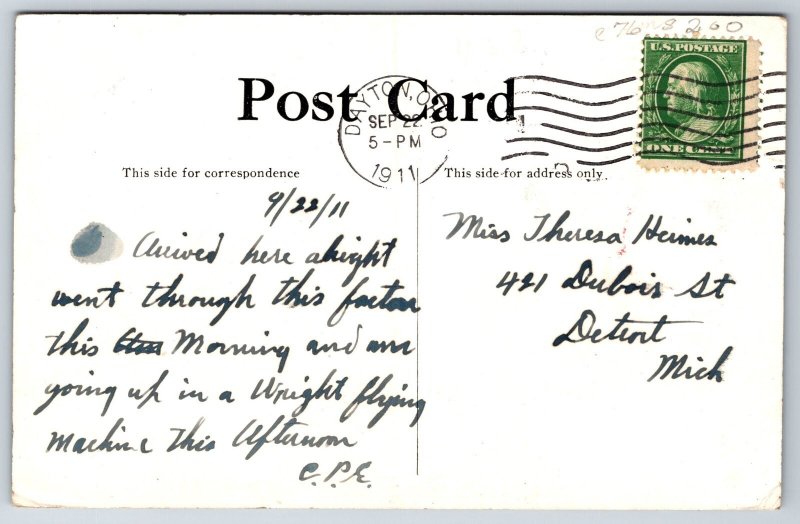 c 76 r 8 260
U.S. POSTAGE
ONE CENT
Post Card
DAYTON, OHIO
SEP 22
5-PM
1911
This side for correspondence
This side for address only
9/22/11
Arrived here alright
went through this factory
this Morning and am
going up in a Wright flying
Machine this Afternoon
C.P.E.
Miss Theresa Heimes
421 Dubois St
Detroit
Mich